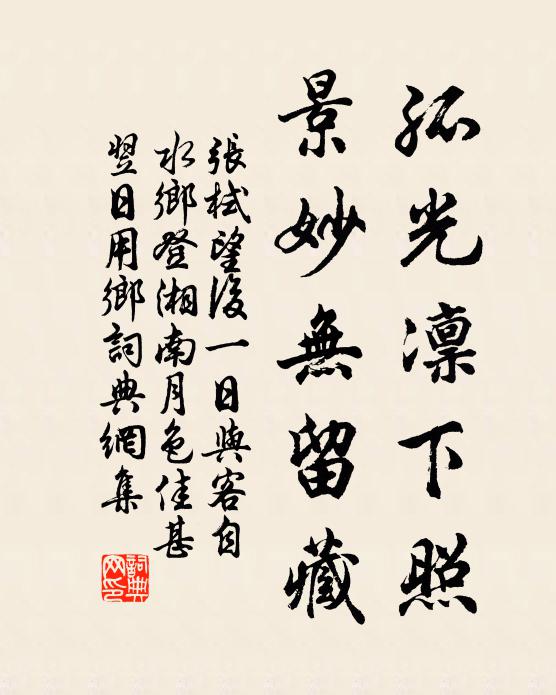 孤光凛下照
景妙無留藏
張栻望後一日與客自
水鄉登湘南月色佳甚
翌日用鄉詞典網集
詞典網印